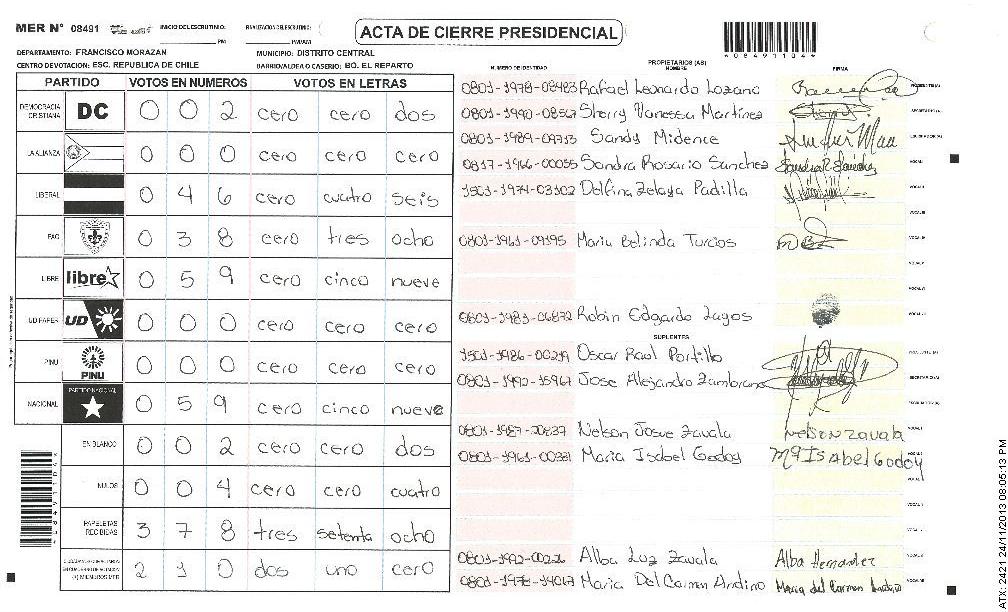 MER N° 08491 INICIO DEL ESCRUTINIO: PM FINALIZACION DEL ESCRUTINIO: PM/AM
ACTA DE CIERRE PRESIDENCIAL
*08491104*
DEPARTAMENTO: FRANCISCO MORAZAN MUNICIPIO: DISTRITO CENTRAL
CENTRO DE VOTACION: ESC. REPUBLICA DE CHILE BARRIO/ALDEA O CASERIO: BO. EL REPARTO
PARTIDO VOTOS EN NUMEROS VOTOS EN LETRAS
DEMOCRACIA CRISTIANA DC 0 0 2 cero cero dos
LA ALIANZA 0 0 0 cero cero cero
LIBERAL 0 4 6 cero cuatro seis
FAO 0 3 8 cero tres ocho
LIBRE libre 0 5 9 cero cinco nueve
UD FAPER UD 0 0 0 cero cero cero
PINU PINU 0 0 0 cero cero cero
NACIONAL PARTIDO NACIONAL 0 5 9 cero cinco nueve
EN BLANCO 0 0 2 cero cero dos
NULOS 0 0 4 cero cero cuatro
PAPELETAS RECIBIDAS 3 7 8 tres setenta ocho
(+) MIEMBROS MER 2 1 0 dos uno cero
NUMERO DE IDENTIDAD PROPIETARIOS (AS) NOMBRE FIRMA
0801-1978-08483 Rafael Leonardo Lozano
0801-1990-08567 Sherry Vanessa Martinez
0801-1989-09713 Sandy Midence
0817-1966-00055 Sandra Rosario Sanchez
1501-1974-03102 Delfina Zelaya Padilla
0801-1961-09195 Maria Belinda Turcios
0801-1983-06872 Robin Edgardo Lagos
SUPLENTES
1501-1986-00219 Oscar Raul Portillo
0801-1992-15967 Jose Alejandro Zambrano
0801-1987-20837 Nelson Josue Zavala Nelson Zavala
0801-1961-00381 Maria Isabel Godoy Mª Isabel Godoy
0801-1992-00226 Alba Luz Zavala Alba Hernandez
0801-1978-14067 Maria Del Carmen Andino Maria del Carmen Andino
ATX: 2421 24/11/2013 08:05:13 PM